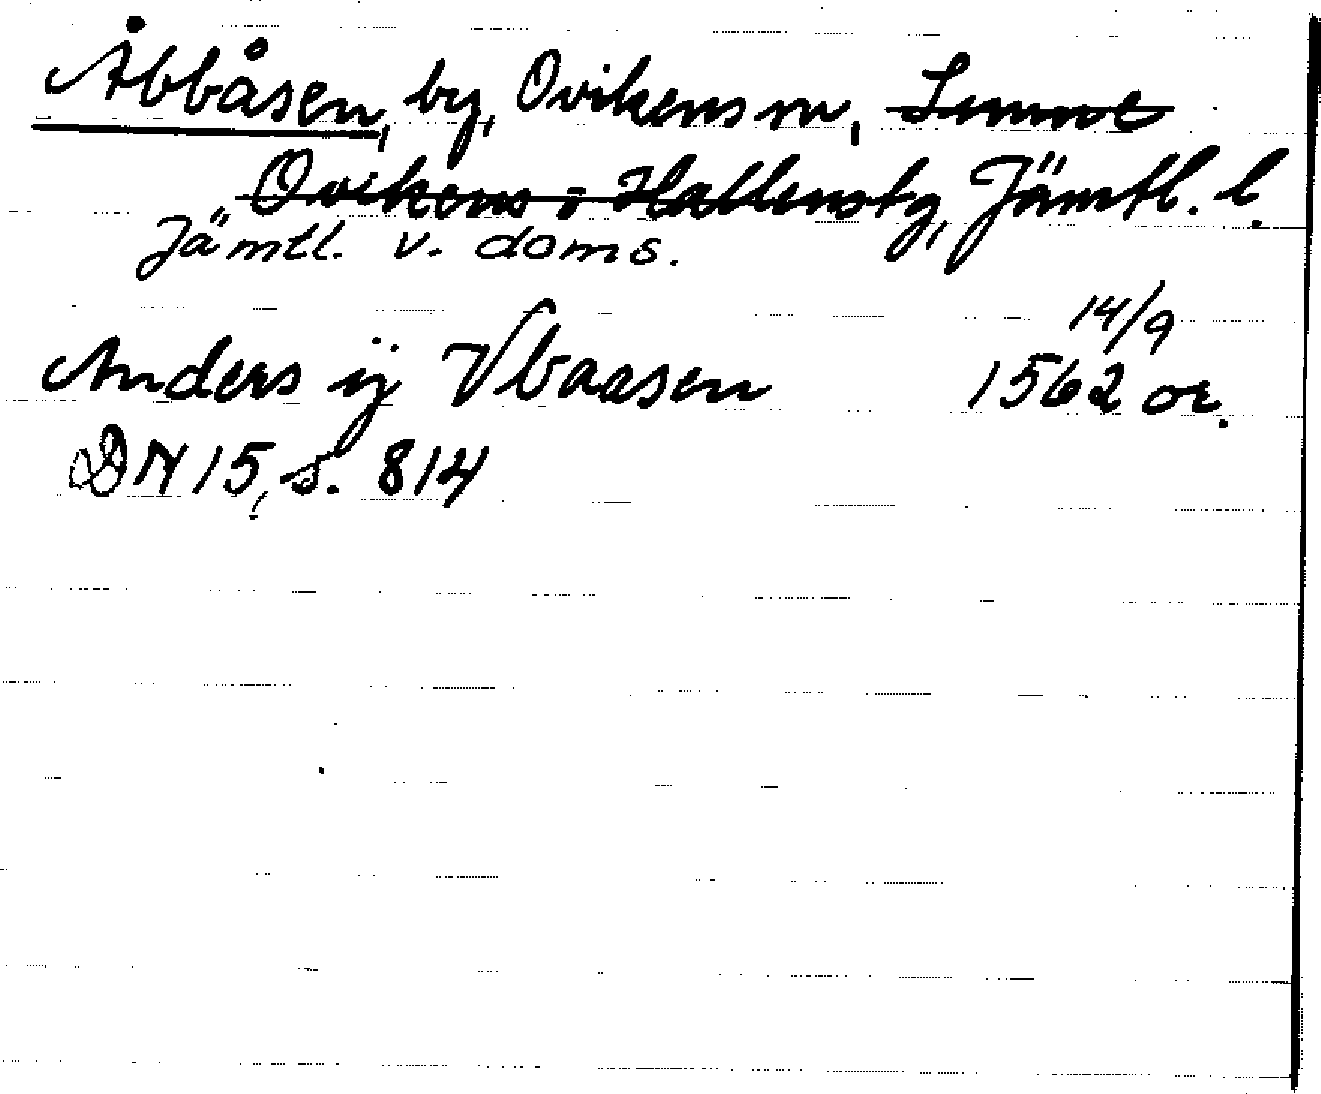 Åbbåsen, by, Ovikens sn, Sunne
Ovikens o Hallens tg, Jämtl. l.
Jämtl. v. doms.
14/9
Anders ij Vbaasen 1562 or.
DN 15, s. 814